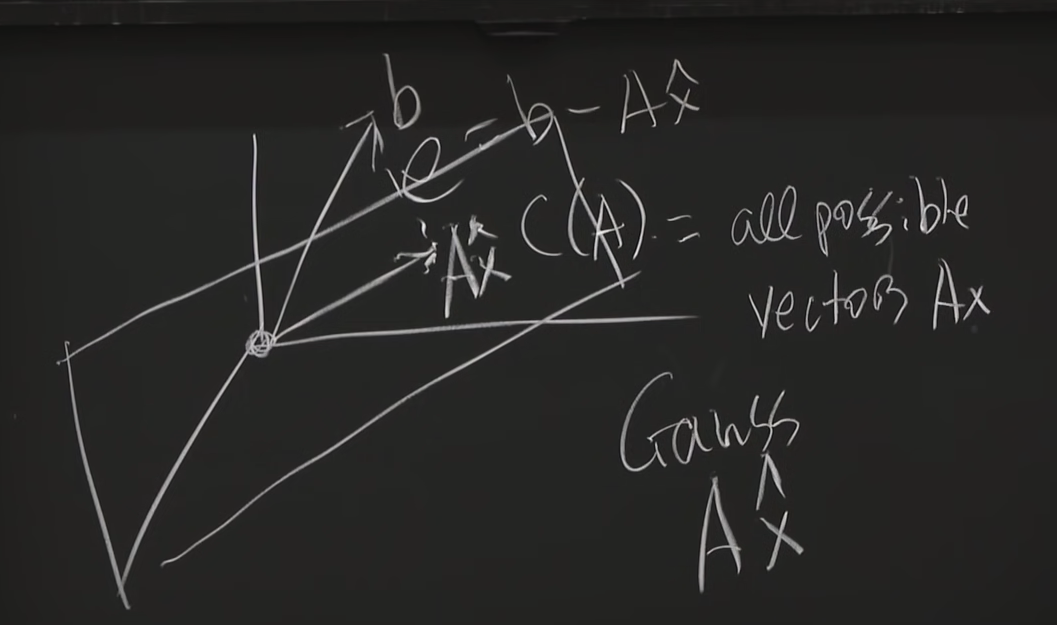 b
e = b - Ax̂
C(A) = all possible
vectors Ax
Ax̂
Gauss
Ax̂